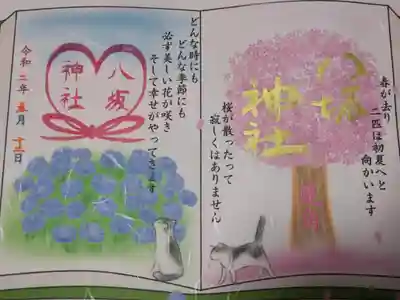 春が去り
二匹は初夏へと
向かいます
八坂
神社
桜が散ったって
寂しくはありません
どんな時にも
どんな季節にも
必ず美しい花が咲き
そして幸せがやってきます
八坂
神社
令和二年五月十二日